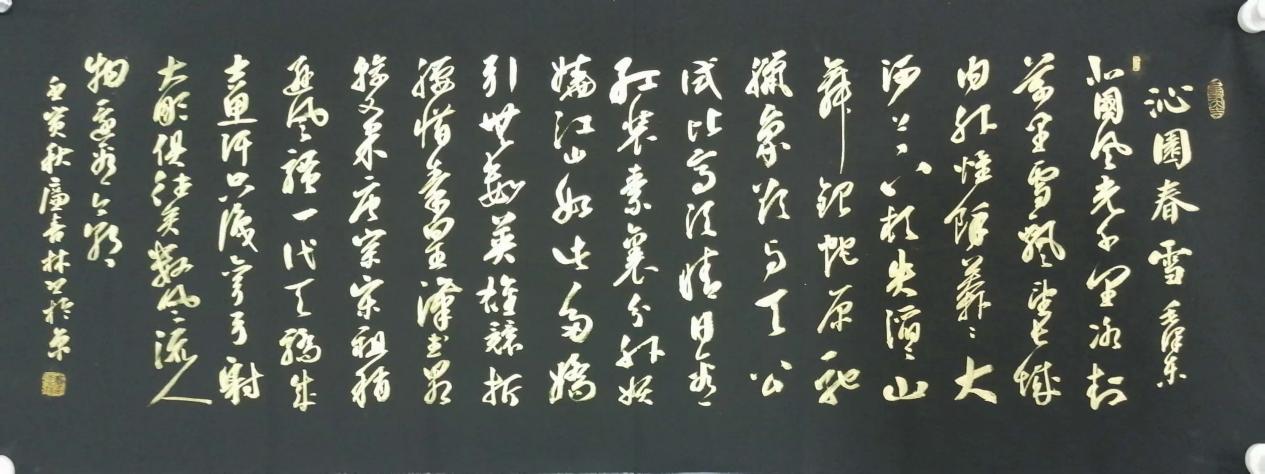 沁園春雪 毛澤東
北國風光千里冰封
萬里雪飄望長城
内外惟餘莽莽大
河上下頓失滔滔山
舞銀蛇原馳
臘象欲與天公
試比高須晴日看
紅裝素裹分外妖
嬈江山如此多嬌
引無數英雄競折
腰惜秦皇漢武略
輸文采唐宗宋祖稍
遜風騷一代天驕成
吉思汗只識彎弓射
大雕俱往矣數風流人
物還看今朝
壬寅秋吉林書於京